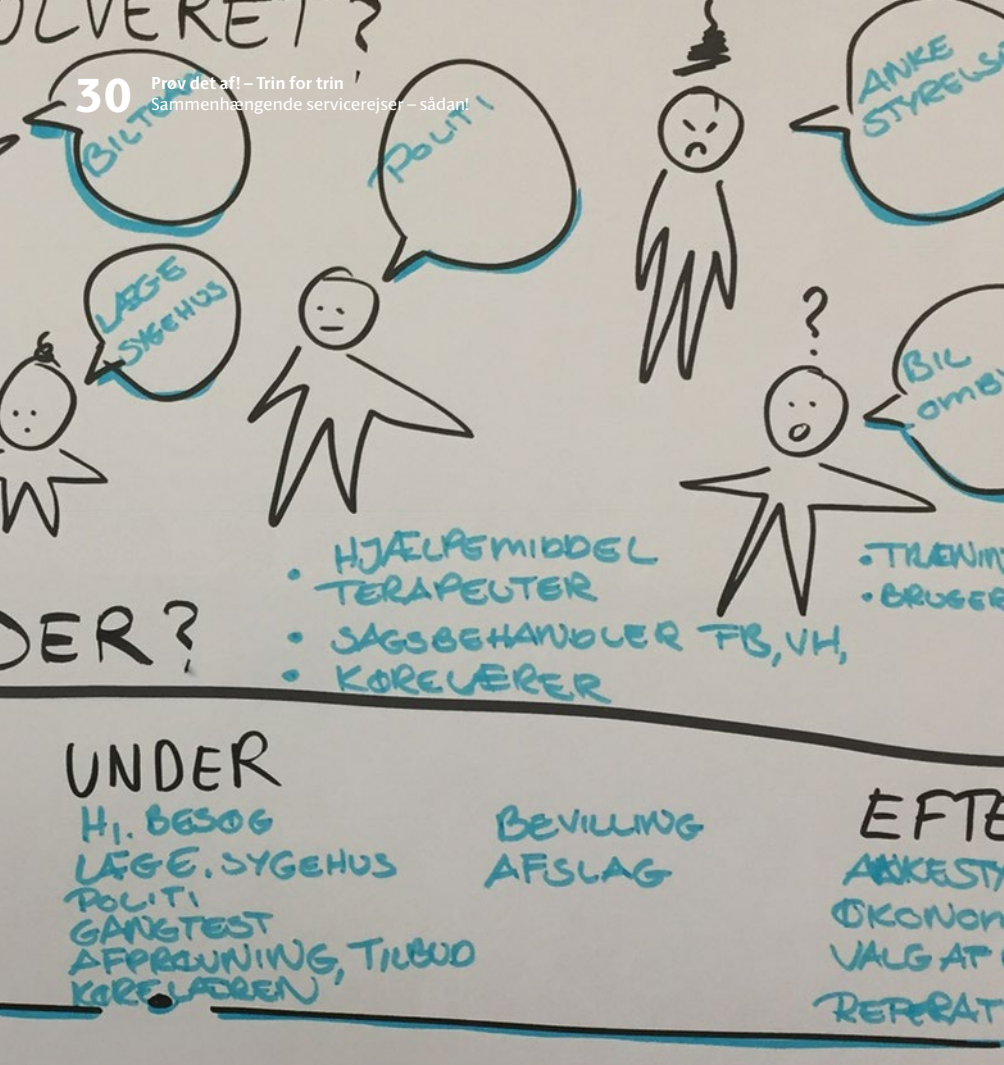 OLVERET?
30 Prøv det af! – Trin for trin
Sammenhængende servicerejser – sådan!
POLITI
ANKE
LÆGE
SYGEHUS
?
BIL
HJÆLPEMIDDEL
TERAPEUTER
SAGSBEHANDLER FB, VH,
KØRELÆRER
DER?
UNDER
HJ. BESØG
LÆGE, SYGEHUS
POLITI
GANGTEST
AFPRØVNING, TILBUD
KØRELÆREN
BEVILLING
AFSLAG
EFTE
ØKONOM
VALG AF